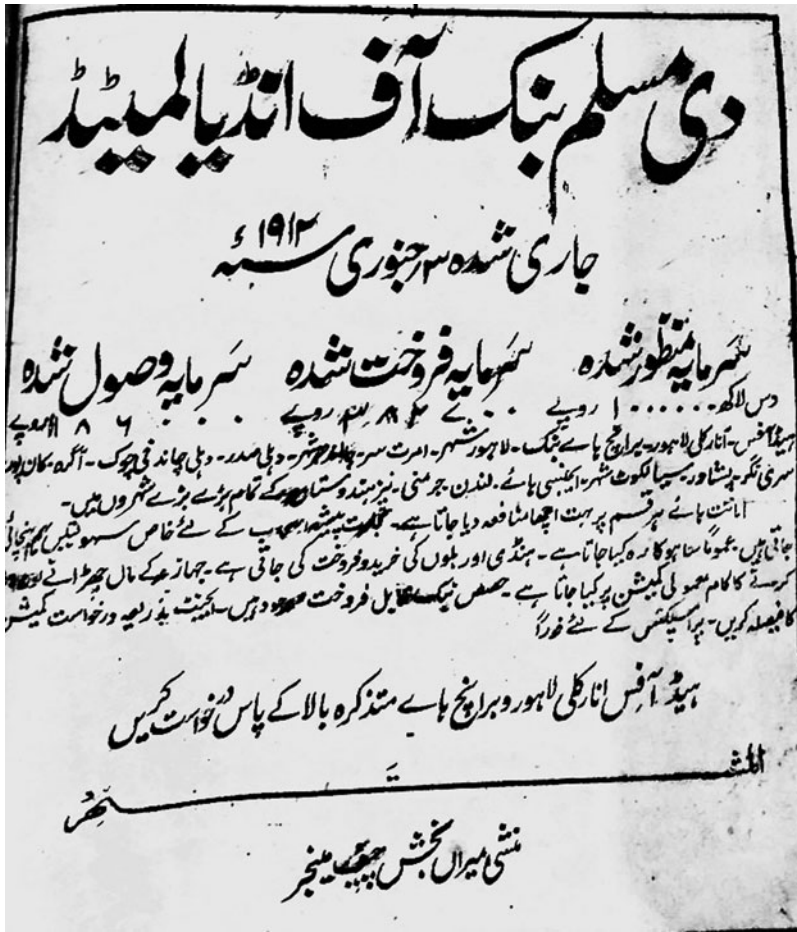 دی مسلم بنک آف انڈیا لمیٹڈ
جاری شدہ ۳؍جنوری ۱۹۱۲ سنہ ء
سرمایہ منظور شدہ سرمایہ فروخت شدہ سرمایہ وصول شدہ
دس لاکھ ۱۰۰۰۰۰۰ روپے روپے روپے
ہیڈ آفس۔ انارکلی لاہور۔ برانچ ہاے بنک۔ لاہور شہر۔ امرت سر۔ شہر۔ دہلی صدر۔ دہلی چاندنی چوک۔ آگرہ۔ کان پور
سری نگر۔ پشاور۔ سیالکوٹ شہر۔ ایجنسی ہائے۔ لندن۔ جرمنی۔ نیز ہندوستان کے تمام بڑے بڑے شہروں میں۔
امانت ہائے ہر قسم پر بہت اچھا منافعہ دیا جاتا ہے۔ تجارت پیشہ کے لئے خاص سہولتیں بہم پہنچائی
جاتی ہیں۔ عموماً ساہوکارہ کیا جاتا ہے۔ ہنڈی اور بلوں کی خرید و فروخت کی جاتی ہے۔ جہاز کے مال چھڑانے
کرنے کا کام معمولی کمیشن پر کیا جاتا ہے۔ حصص بنک قابل فروخت موجود ہیں۔ ایجنٹ بذریعہ درخواست کمیشن
کا فیصلہ کریں۔ پراسپکٹس کے لئے فوراً
ہیڈ آفس انارکلی لاہور و برانچ ہاے متذکرہ بالا کے پاس درخواست کریں
المشتہر
منشی میراں بخش چیف مینجر